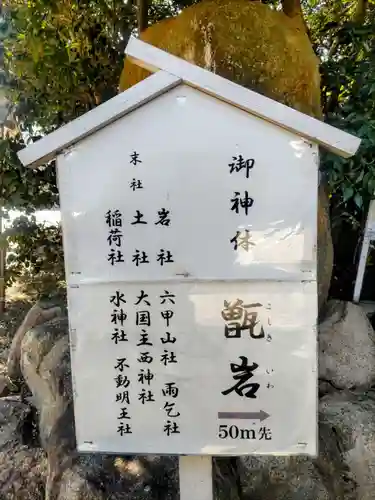 御神体
甑岩
こしき いわ
50m先
末社
岩社
土社
稲荷社
六甲山社 雨乞社
大国主西神社
水神 不動明王社